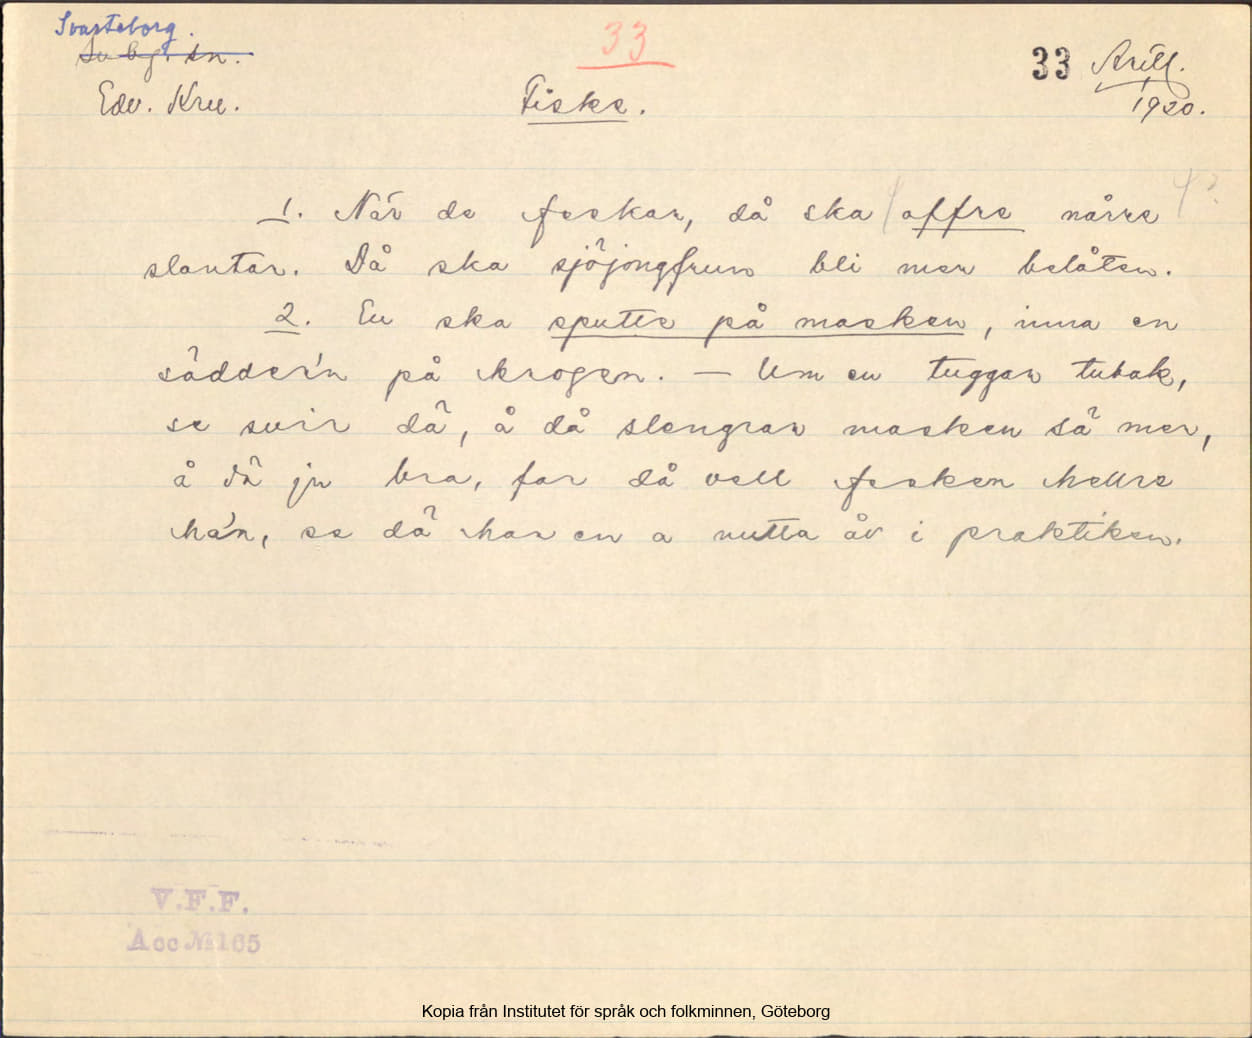 Svarteborg.
33
33 Arill.
Sv bg. sn.
Edv. Kru.
Fiske.
1920.
1. Når de feskar, då ska offre nårre
slantar. Då ska sjöjongfrun bli mer belåten.
2. En ska sputte på masken, inna en
sädder'n på krogen. — Um en tuggar tubak,
se svir dä, å då slengrar masken sä mer,
å dä ju bra, for då vell fesken hellre
ha'n, se dä har en a nutta åv i praktiken.
V.F.F.
Acc № 165
Kopia från Institutet för språk och folkminnen, Göteborg